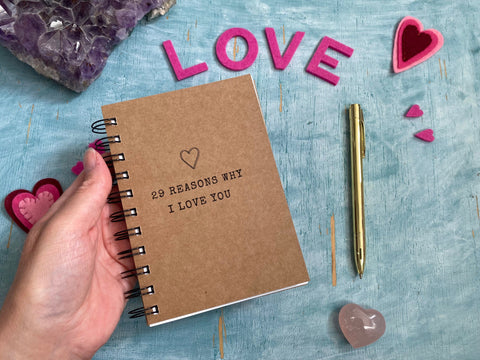 LOVE
29 REASONS WHY
I LOVE YOU